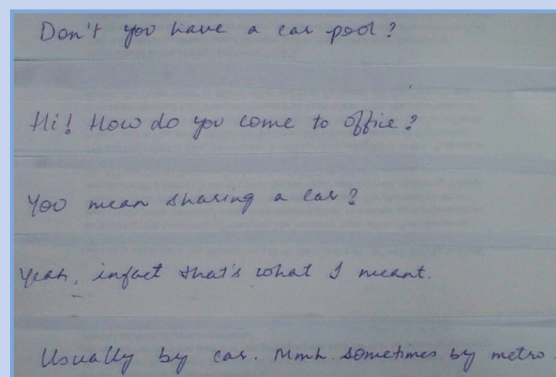 Don't you have a car pool?
Hi! How do you come to office?
You mean sharing a car?
Yeah, infact that's what I meant.
Usually by car. Mmh. sometimes by metro